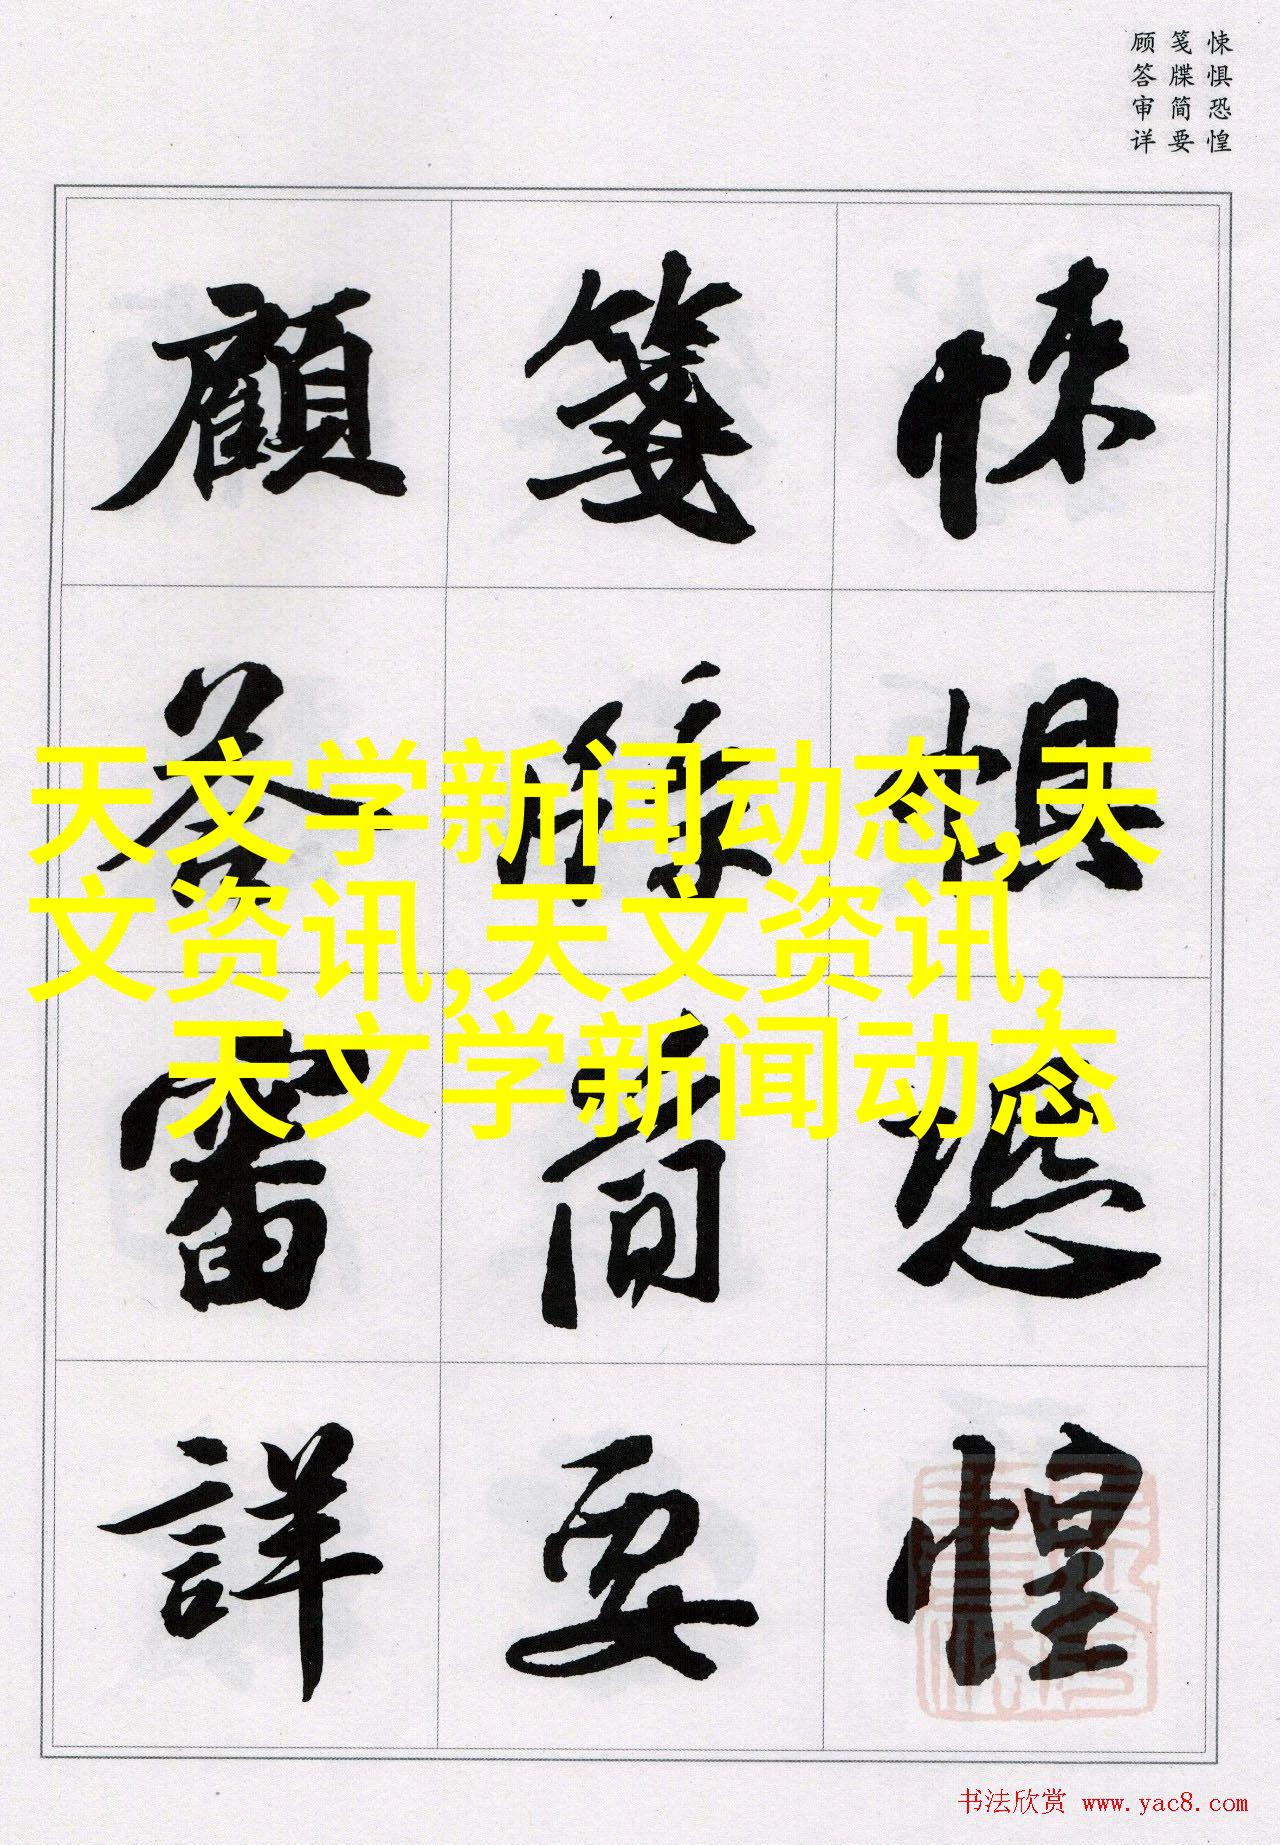 悚惧恐惶
笺牒简要
顾答审详
悚懼恐惶
箋牒簡要
顧答審詳
天文学新闻动态,天
文资讯,天文资讯,
天文学新闻动态
书法欣赏 www.yac8.com